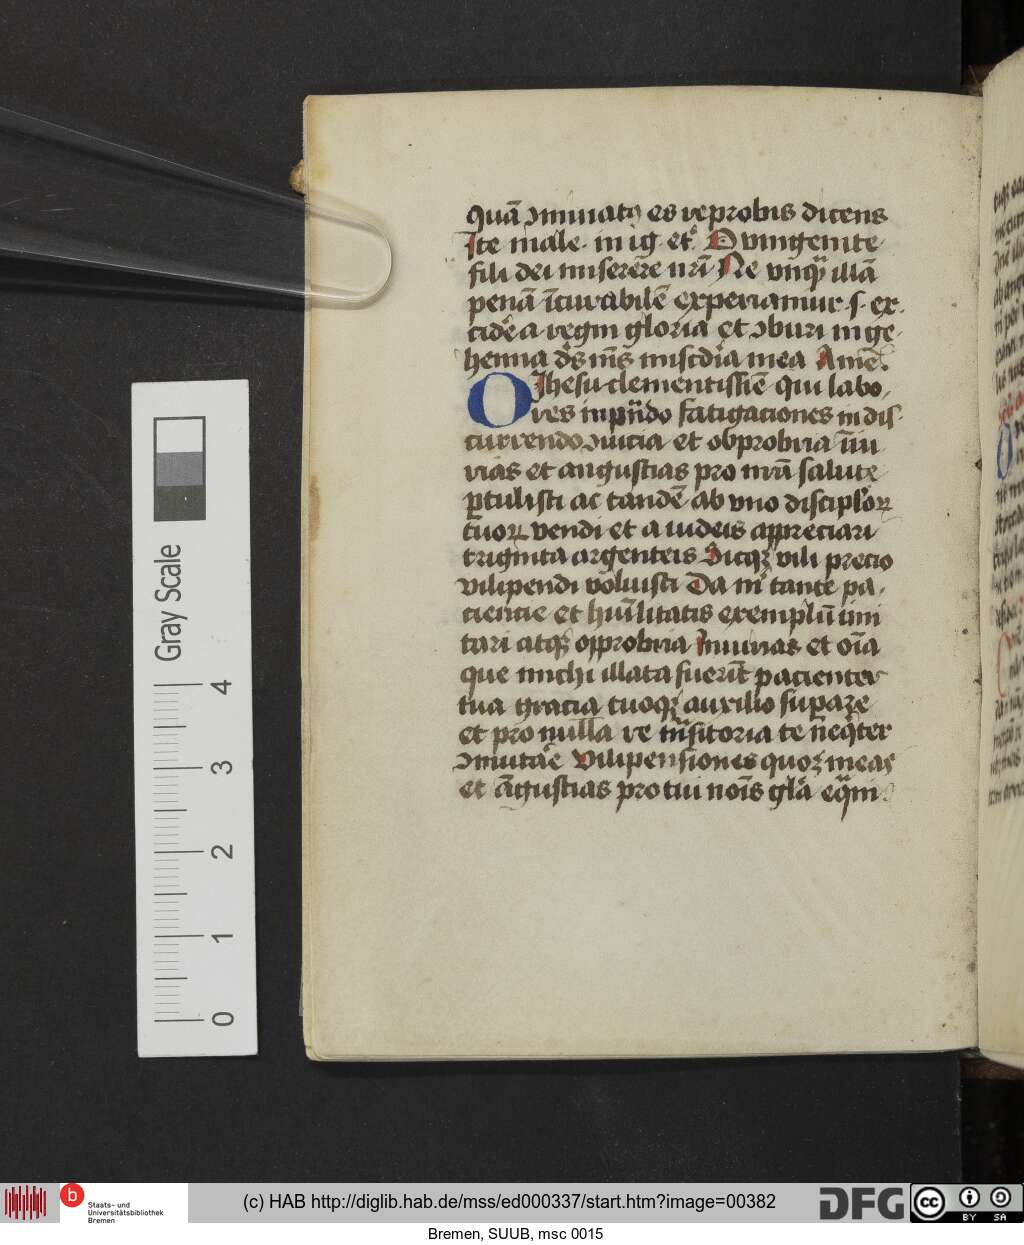 quā ɔminatꝰ es reprobis dicens
Ite male. in ig et̾. O vnigenite
fili dei miserēre nr̄i Ne vnqꝫ illā
penā īcurabilē experiamur .s. ex
cidēa regni gloria et ɔburi in ge
henna dꝰs mꝰs miscdia mea Amē.
O Ihesu clementissīe qui labo
res inpn̄do fatigaciones in dis
currendo ɔuicia et obprobria īiu
rias et angustias pro nrā salute
ꝑtulisti ac tandē ab vno disciplor̄ꝝ
tuoꝝ vendi et a iudeis appreciari
triginta argenteis Sicqꝫ vili precio
vilipendi voluisti Da m̄ tante pa
ciencie et hūilitatis exemplū imi
tari atqꝫ opprobria Iniurias et oīa
que michi illata fuerīt pacienter
tua gracia tuoqꝫ auxilio supare
et pro nulla re tn̄sitoria te neq̄ter
ɔmutare Vilipensiones quoqꝫ meas
et āgustias pro tui noīs gl̄a eq̄ni
Gray Scale
4
3
2
1
0
b
Staats- und
Universitätsbibliothek
Bremen
(c) HAB http://diglib.hab.de/mss/ed000337/start.htm?image=00382
DFG
cc BY SA
Bremen, SUUB, msc 0015